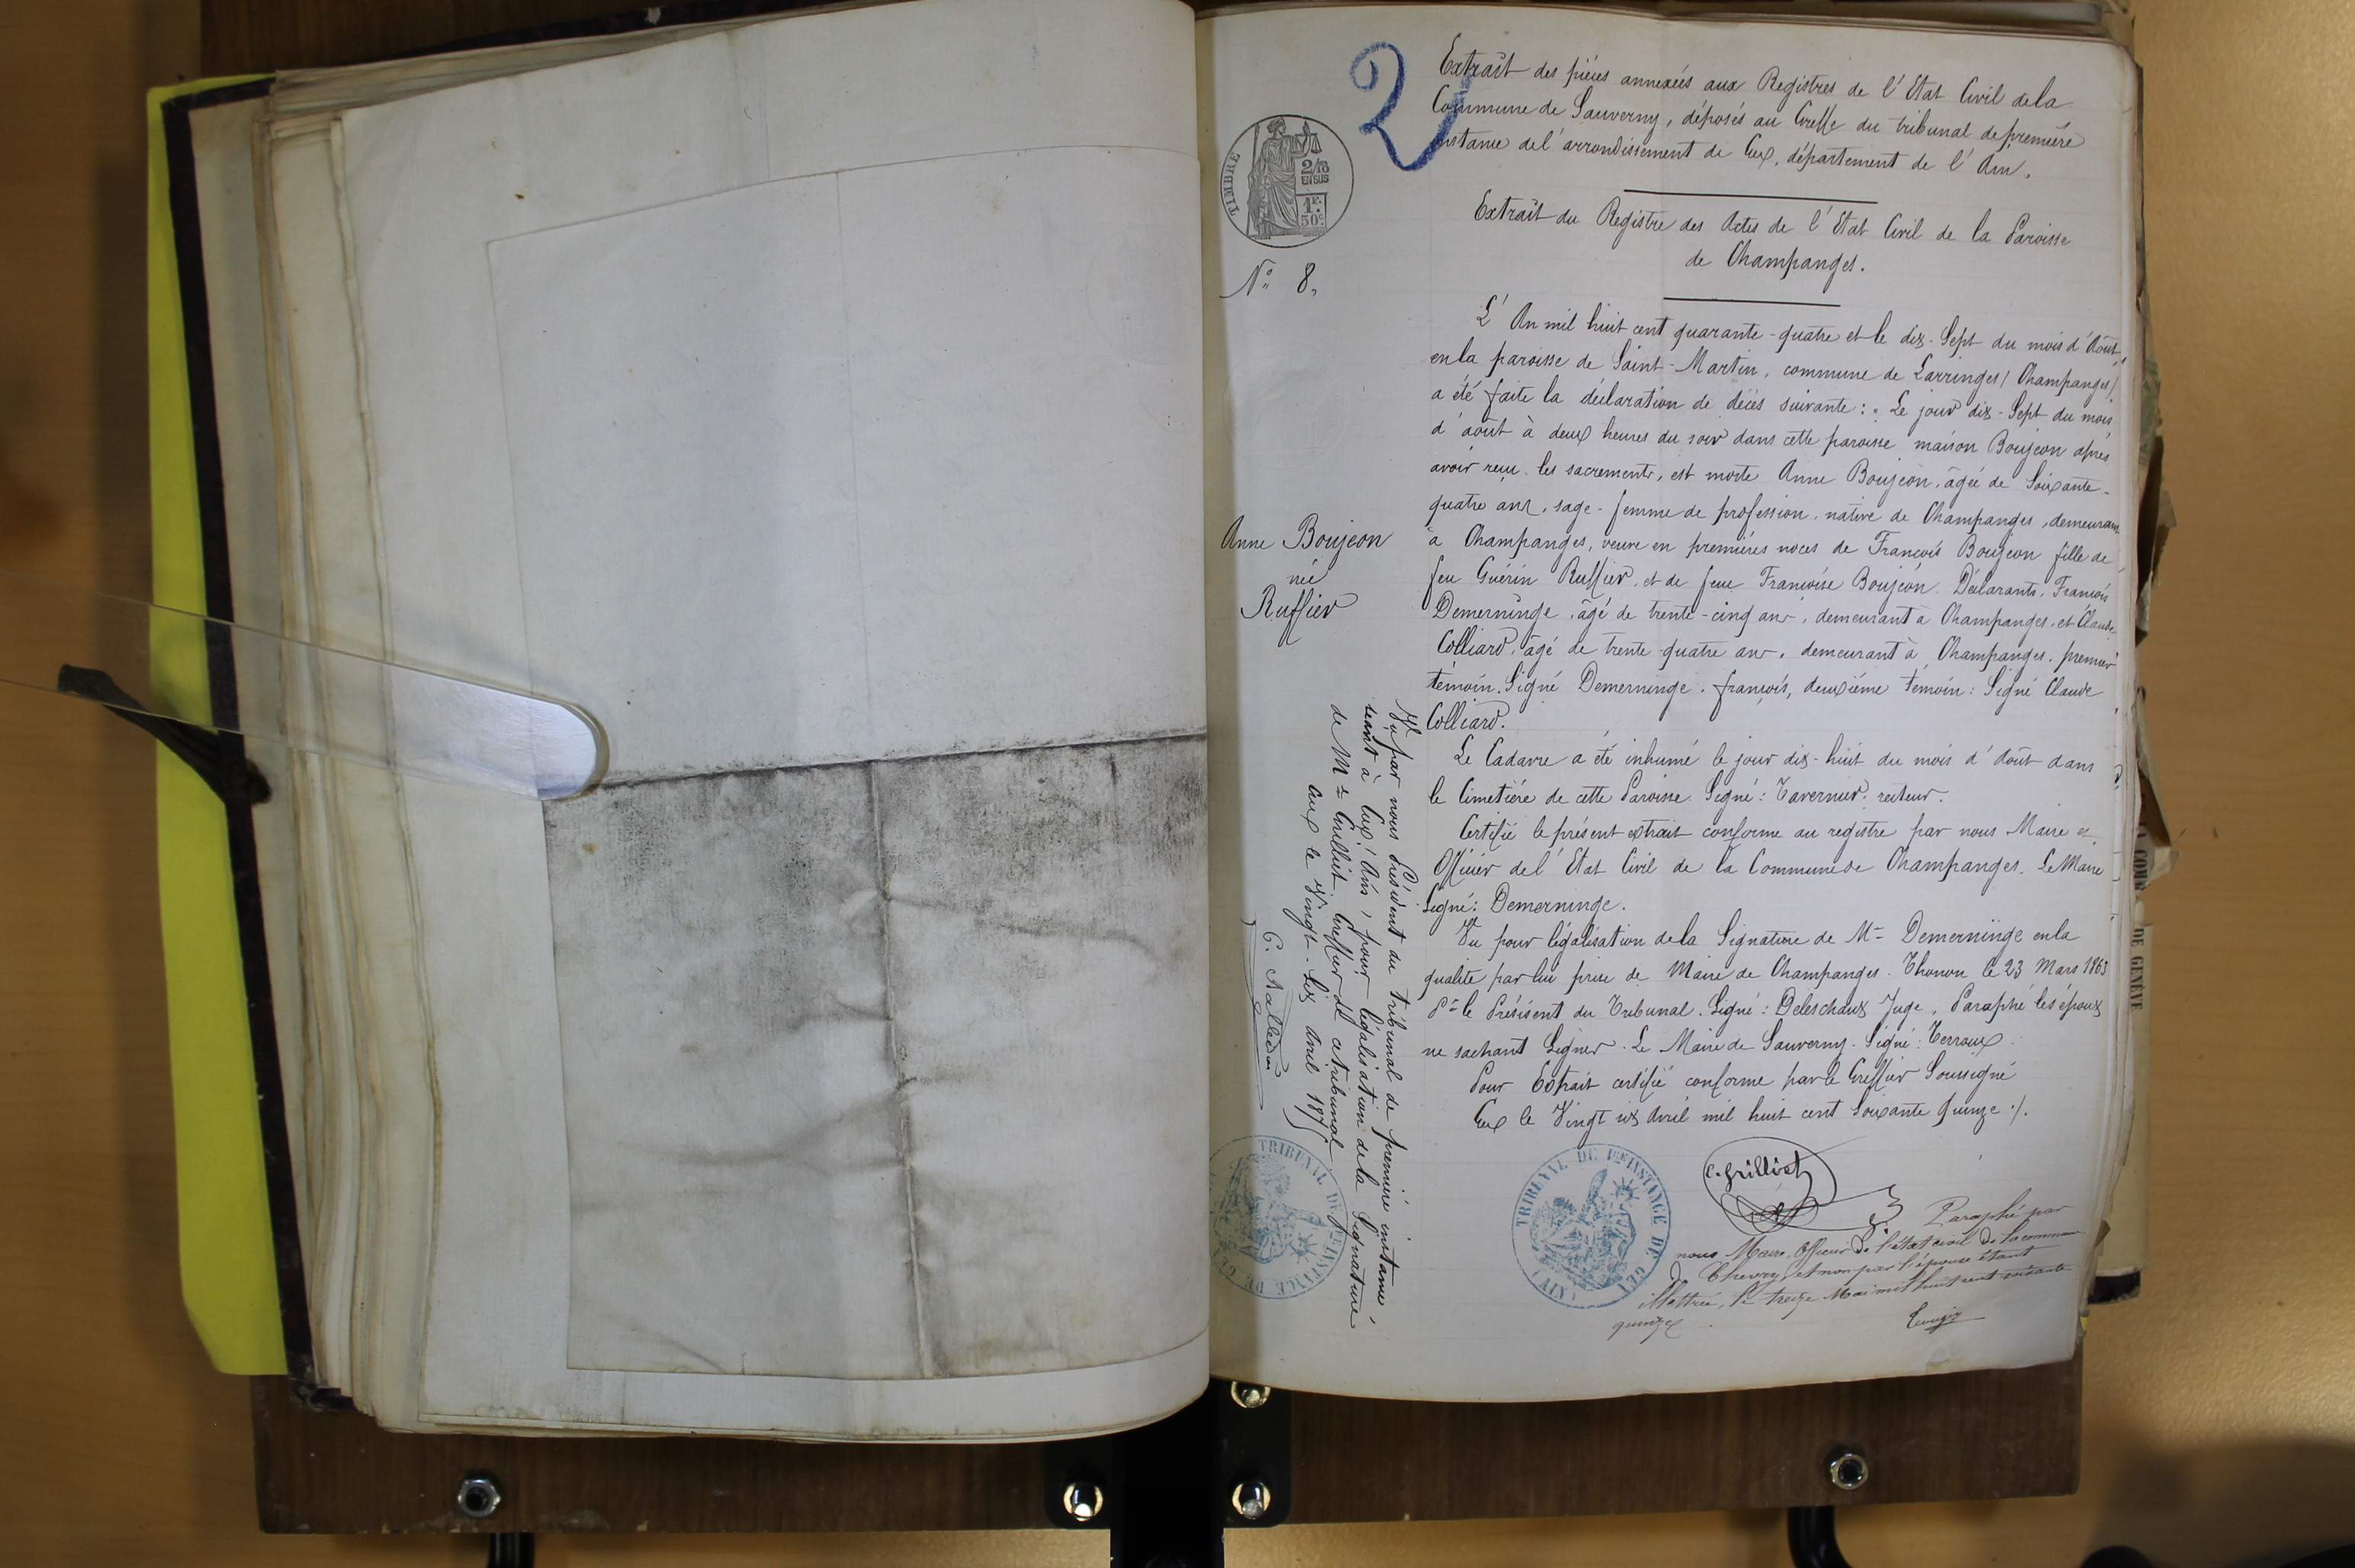 2
Extrait des pièces annexées aux Registres de l'Etat Civil de la
Commune de Sauverny, déposés au Greffe du tribunal de première
instance de l'arrondissement de Gex, département de l'Ain.
TIMBRE
2/10
EN SUS
1F.
50c
Extrait du Registre des Actes de l'Etat Civil de la Paroisse
de Champanges.
No 8.
L'An mil huit cent quarante-quatre et le dix-sept du mois d'Août,
en la paroisse de Saint-Martin, commune de Larringes (Champanges)
a été faite la déclaration de décès suivante: Le jour dix-sept du mois
d'août à deux heures du soir dans cette paroisse maison Boujeon après
avoir reçu les sacrements, est morte Anne Boujeon, âgée de soixante-
quatre ans, sage-femme de profession, native de Champanges, demeurant
à Champanges, veuve en premières noces de François Boujeon fille de
feu Guérin Ruffier et de feue Françoise Boujeon. Déclarants, François
Demerninge, âgé de trente-cinq ans, demeurant à Champanges, et Claude
Colliard, âgé de trente-quatre ans, demeurant à Champanges. premier
témoin. Signé Demerninge. françois, deuxième témoin: Signé Claude
Colliard.
Anne Boujeon
née
Ruffier
Le Cadavre a été inhumé le jour dix-huit du mois d'Août dans
le Cimetière de cette Paroisse. Signé: Tavernier. recteur.
Certifié le présent extrait conforme au registre par nous Maire et
Officier de l'Etat Civil de la Commune de Champanges. Le Maire
Signé: Demerninge.
Vu pour légalisation de la Signature de Mr Demerninge en la
qualité par lui prise de Maire de Champanges. Thonon le 23 Mars 1863
Pr le Président du Tribunal. Signé: Deleschaux Juge. Paraphé les époux
ne sachant Signer. Le Maire de Sauverny. Signé: Terroux.
Pour Extrait certifié conforme par le Greffier Soussigné
Gex le Vingt six Avril mil huit cent soixante quinze ./.
C. Grilliet
Vu par nous Président du tribunal de première instance,
séant à Gex, Ain, pour légalisation de la Signature
de Me Grilliet Greffier dudit tribunal
Gex le Vingt-six Avril 1875
TRIBUNAL DE 1ERE INSTANCE DE GEX
TRIBUNAL DE 1ERE INSTANCE DE GEX (AIN)
Paraphé par
nous Maire, Officier de l'état civil de la commune
de Chevry, et non par l'épouse étant
illettrée, le treize Mai mil huit cent soixante
quinze
DE GENÈVE